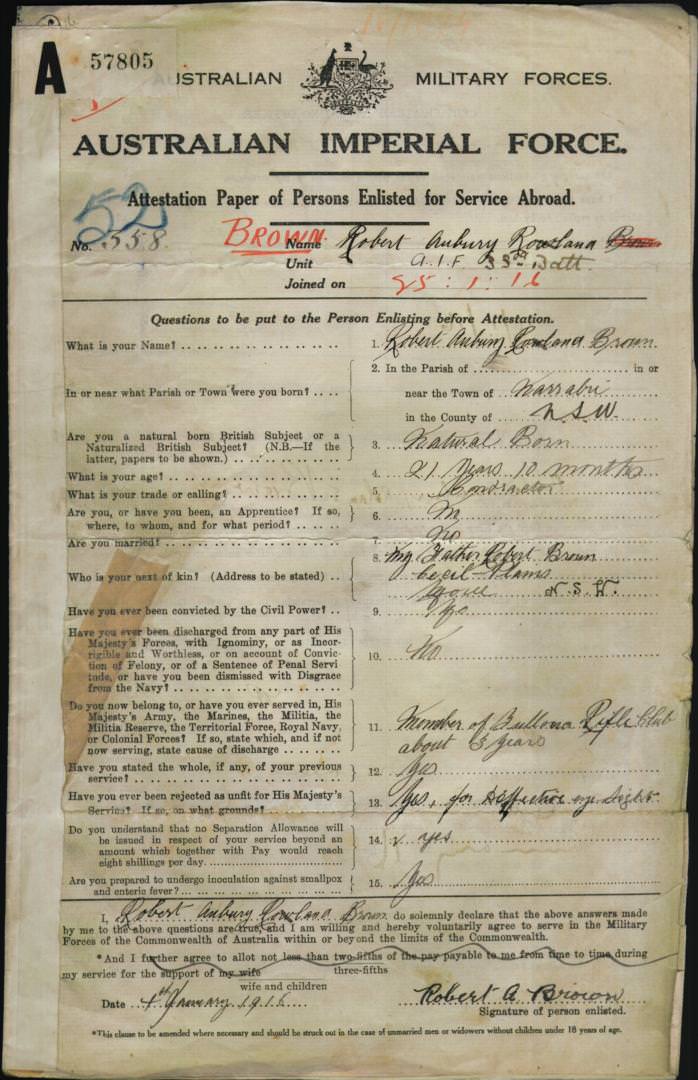 A 57805
AUSTRALIAN MILITARY FORCES.
AUSTRALIAN IMPERIAL FORCE.
Attestation Paper of Persons Enlisted for Service Abroad.
52
No. 558 BROWN. Name Robert Aubury Rowland Brown
Unit A.I.F 33rd Batt.
Joined on 25:1:16
Questions to be put to the Person Enlisting before Attestation.
What is your Name? 1. Robert Aubury Rowland Brown
2. In the Parish of in or
In or near what Parish or Town were you born? near the Town of Narrabri
in the County of N.S.W.
Are you a natural born British Subject or a
Naturalized British Subject? (N.B.—If the 3. Natural Born
latter, papers to be shown.)
What is your age? 4. 21 Years 10 months
What is your trade or calling? 5. Contractor
Are you, or have you been, an Apprentice? If so, 6.
where, to whom, and for what period?
Are you married? 7. No
8. My Father Robert Brown
Who is your next of kin? (Address to be stated) Cecil
N.S.W.
Have you ever been convicted by the Civil Power? 9. No
Have you ever been discharged from any part of His
Majesty's Forces, with Ignominy, or as Incor-
rigible and Worthless, or on account of Convic-
tion of Felony, or of a Sentence of Penal Servi 10. No
tude, or have you been dismissed with Disgrace
from the Navy?
Do you now belong to, or have you ever served in, His
Majesty's Army, the Marines, the Militia, the
Militia Reserve, the Territorial Force, Royal Navy, 11. Member of Rifle Club
or Colonial Forces? If so, state which, and if not about 3 years
now serving, state cause of discharge
Have you stated the whole, if any, of your previous
service? 12. Yes
Have you ever been rejected as unfit for His Majesty's
Service? If so, on what grounds? 13. Yes, for Deffective eye sight
Do you understand that no Separation Allowance will
be issued in respect of your service beyond an 14. yes
amount which together with Pay would reach
eight shillings per day
Are you prepared to undergo inoculation against smallpox
and enteric fever? 15. Yes
I, Robert Aubury Rowland Brown do solemnly declare that the above answers made
by me to the above questions are true, and I am willing and hereby voluntarily agree to serve in the Military
Forces of the Commonwealth of Australia within or beyond the limits of the Commonwealth.
*And I further agree to allot not less than two-fifths of the pay payable to me from time to time during
three-fifths
my service for the support of my wife
wife and children
Date 4th January 1916 Robert A Brown
Signature of person enlisted.
*This clause to be amended where necessary and should be struck out in the case of unmarried men or widowers without children under 18 years of age.